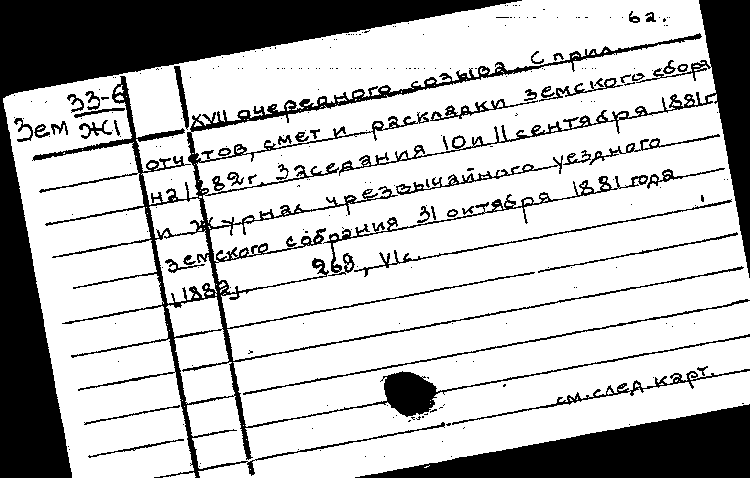 62.
33-6
Зем ЖI
XVII очередного созыва. С прил.
отчетов, смет и раскладки земского сбора
на 1882г. Заседания 10 и 11 сентября 1881г.
и журнал чрезвычайного уездного
земского собрания 31 октября 1881 года
[1882]. 268, VIс.
см. след. карт.